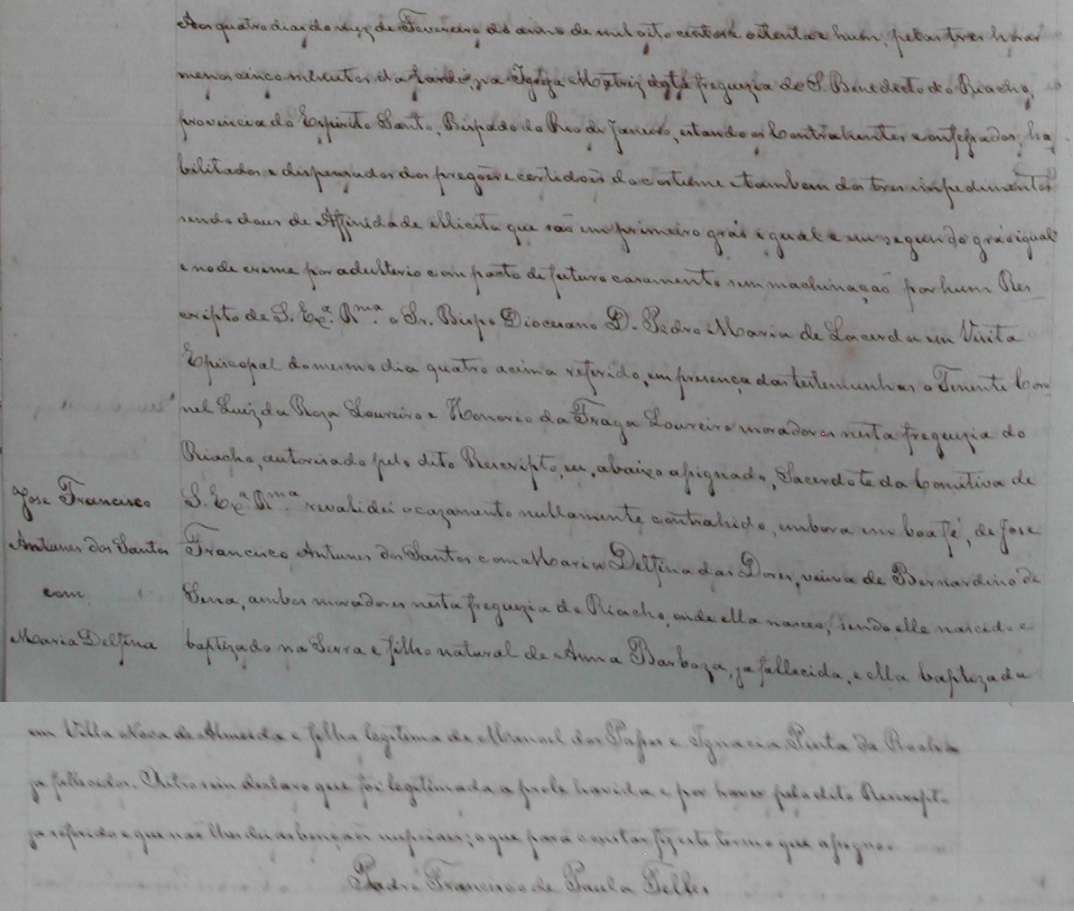 Aos quatro dias do mez de Fevereiro do anno de mil oito centos e oitenta e hum, pelas tres horas
menos cinco minutos da tarde, na Igreja Matriz desta freguezia de S. Benedicto do Riacho,
provincia do Espirito Santo, Bispado do Rio de Janeiro, estando os Contrahentes confessados, ha
bilitados e dispensados dos pregões e certidões do costume e tambem dos tres impedimentos
sendo dous de Affinidade illicita que são em primeiro gráo igual e em segundo gráo igual
e no de crime por adulterio com pacto de futuro casamento sem machinação por hum Res
cripto de S. Exª. Rma. o Sr. Bispo Diocesano D. Pedro Maria de Lacerda em Visita
Episcopal do mesmo dia quatro acima referido, em presença das testemunhas o Tenente Coro
nel Luiz da Roza Loureiro e Honorio da Fraga Loureiro moradores nesta freguezia do
Riacho, autorisado pelo dito Rescripto, eu, abaixo assignado, Sacerdote da Comitiva de
S. Exª. Rma. revalidei o cazamento nullamente contrahido, embora em boa fé, de José
Francisco Antunes dos Santos com Maria Delfina das Dores, veiuva de Bernardino de
Sena, ambos moradores nesta freguezia do Riacho, onde ella nasceo, sendo elle nascido e
baptizado na Serra e filho natural de Anna Barboza, ja fallecida, e ella baptizada
Jose Francisco
Antunes dos Santos
com
Maria Delfina
em Villa Nova de Almeida e filha legitima de Manoel dos Passos e Ignacia Pinta da Rocha
ja fallecidos. Outro sim declaro que foi legitimada a prole havida e por haver pelo dito Rescripto
ja referido e que não lhes dei as bençãos nupciaes; o que para constar fiz este termo que assigno.
Padre Francisco de Paula Telles